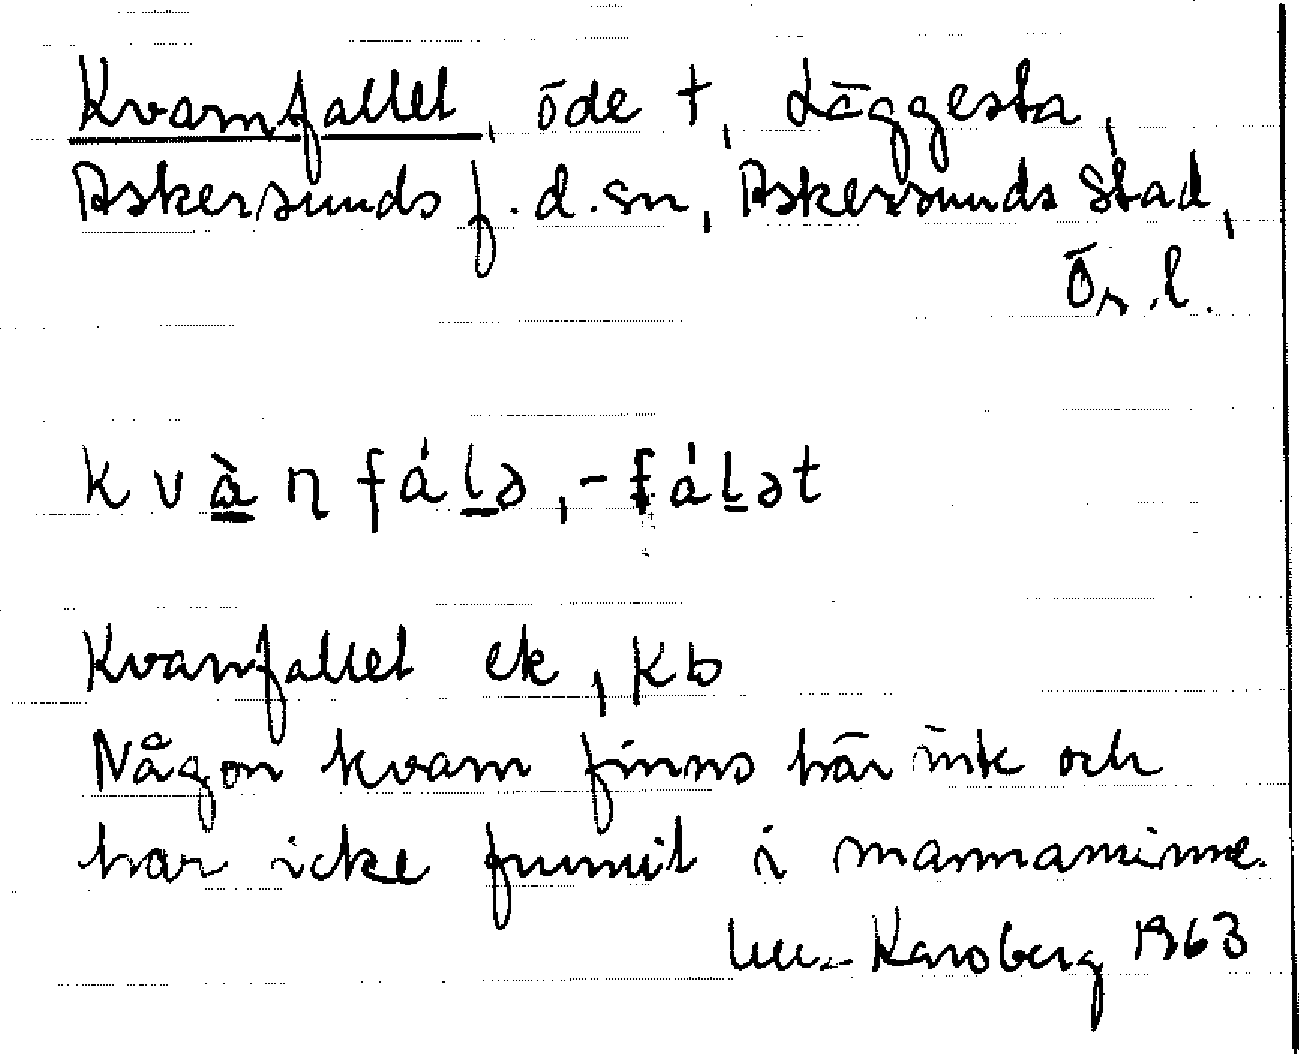 Kvarnfallet, öde t, Läggesta,
Askersunds f.d.sn, Askersunds stad,
Ör.l.
kvà̱ɳ fáḻə, -fáḻət
Kvarnfallet ek, kb
Någon kvarn finns här inte och
har icke funnits i mannaminne.
Karsberg 1963